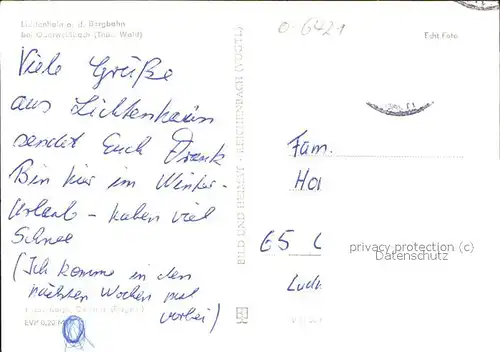 Lichtenhain a. d. Bergbahn
bei Oberweißbach (Thür. Wald)
0-6421
Echt Foto
Viele Grüße
aus Lichtenhain
sendet Euch Frank
Bin hier im Winter-
Urlaub - haben viel
Schnee
(Ich komme in den
nächsten Wochen mal
vorbei)
BILD UND HEIMAT · REICHENBACH (VOGTL)
Fam.
Ho
65 G
privacy protection (c)
Datenschutz
Ludw
EVP 0,20 M